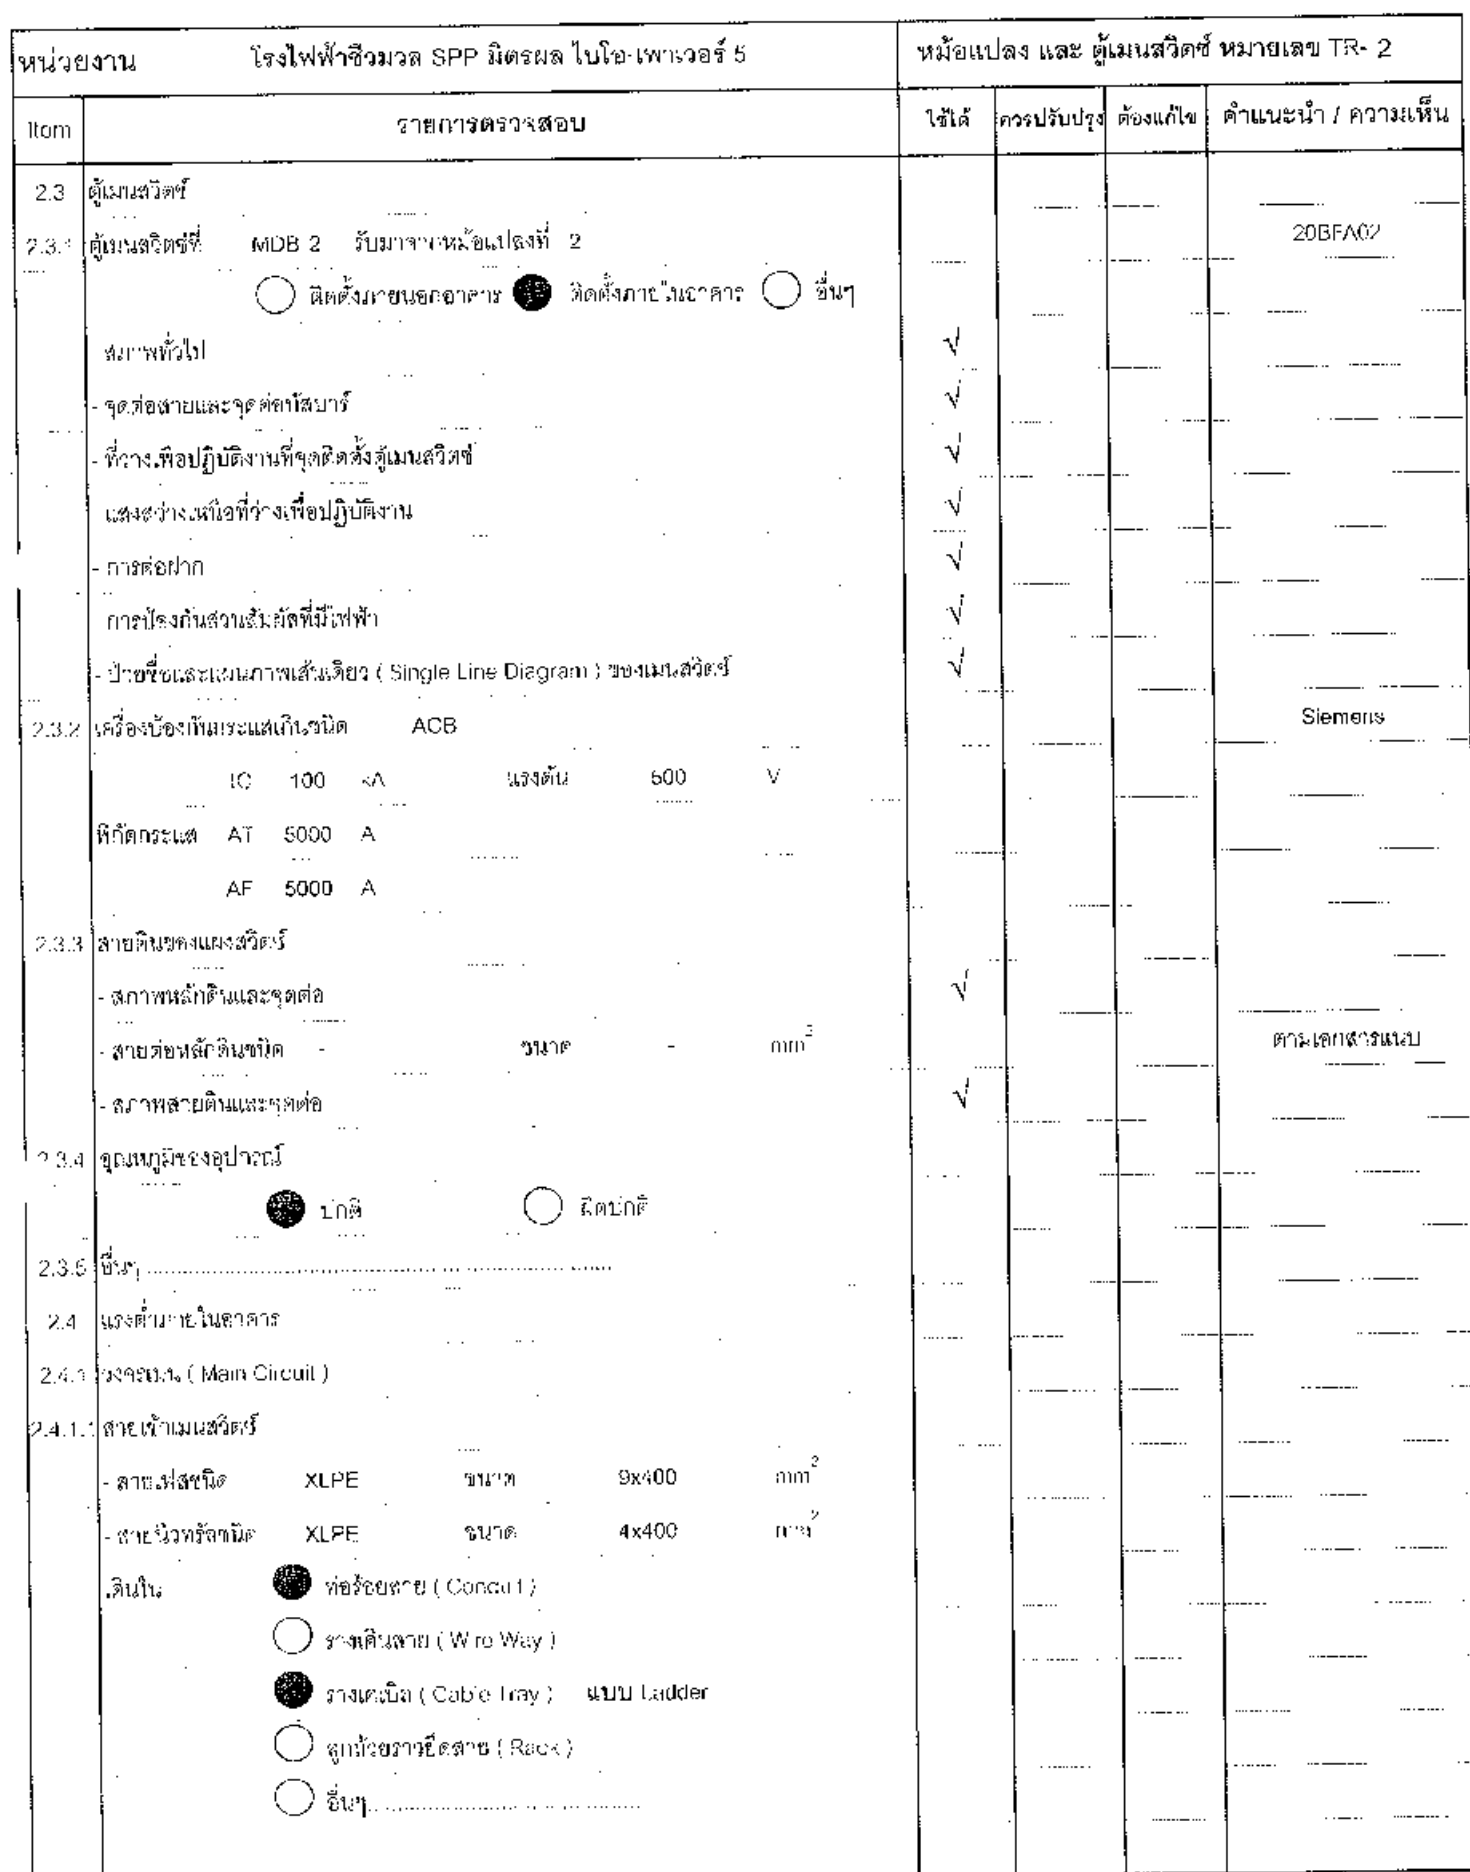 หน่วยงาน โรงไฟฟ้าชีวมวล SPP มิตรผล ไบโอ-เพาเวอร์ 5 หม้อแปลง และ ตู้เมนสวิตซ์ หมายเลข TR- 2
Item รายการตรวจสอบ ใช้ได้ ควรปรับปรุง ต้องแก้ไข คำแนะนำ / ความเห็น
2.3 ตู้เมนสวิตซ์
2.3.1 ตู้เมนสวิตซ์ที่ MDB 2 รับมาจากหม้อแปลงที่ 2 20BFA02
ติดตั้งภายนอกอาคาร ติดตั้งภายในอาคาร อื่นๆ
สภาพทั่วไป √
- จุดต่อสายและจุดต่อบัสบาร์ √
- ที่ว่างเพื่อปฏิบัติงานที่จุดติดตั้งตู้เมนสวิตซ์ √
แสงสว่างเหนือที่ว่างเพื่อปฏิบัติงาน √
- การต่อฝาก √
การป้องกันส่วนสัมผัสที่มีไฟฟ้า √
- ป้ายชื่อและแผนภาพเส้นเดียว ( Single Line Diagram ) ของเมนสวิตซ์ √
2.3.2 เครื่องป้องกันกระแสเกินชนิด ACB Siemens
IC 100 kA แรงดัน 500 V
พิกัดกระแส AT 5000 A
AF 5000 A
2.3.3 สายดินของแผงสวิตซ์
- สภาพหลักดินและจุดต่อ √
- สายต่อหลักดินชนิด - ขนาด - mm² ตามเอกสารแนบ
- สภาพสายดินและจุดต่อ √
2.3.4 อุณหภูมิของอุปกรณ์
ปกติ ผิดปกติ
2.3.5 อื่นๆ
2.4 แรงต่ำภายในอาคาร
2.4.1 วงจรเมน ( Main Circuit )
2.4.1.1 สายเข้าเมนสวิตซ์
- สายเฟสชนิด XLPE ขนาด 9x400 mm²
- สายนิวทรัลชนิด XLPE ขนาด 4x400 mm²
เดินใน ท่อร้อยสาย ( Conduit )
รางเดินสาย ( Wire Way )
รางเคเบิล ( Cable Tray ) แบบ Ladder
ลูกถ้วยราวยึดสาย ( Rack )
อื่นๆ